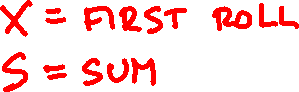 X = FIRST ROLL
S = SUM